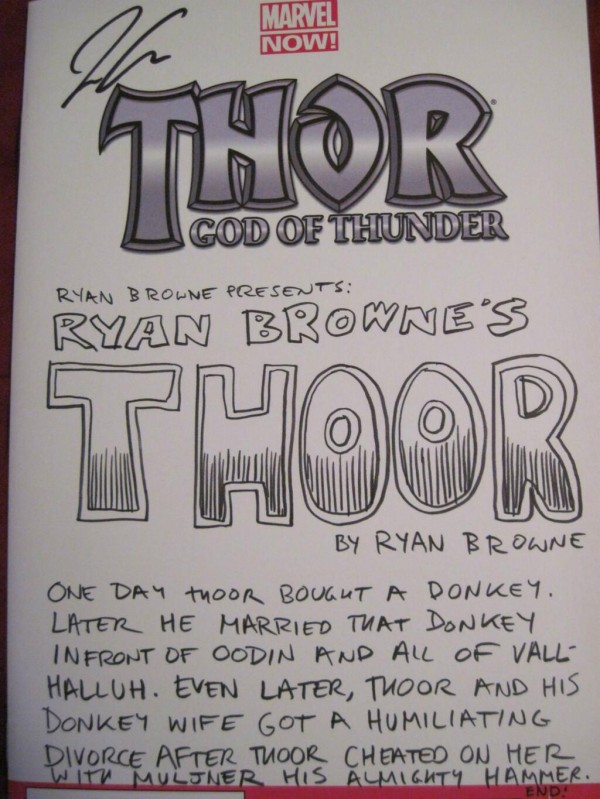 MARVEL
NOW!
THOR
GOD OF THUNDER
RYAN BROWNE PRESENTS:
RYAN BROWNE'S
THOOR
BY RYAN BROWNE
ONE DAY THOOR BOUGHT A DONKEY.
LATER HE MARRIED THAT DONKEY
INFRONT OF OODIN AND ALL OF VALL-
HALLUH. EVEN LATER, THOOR AND HIS
DONKEY WIFE GOT A HUMILIATING
DIVORCE AFTER THOOR CHEATED ON HER
WITH MULJNER HIS ALMIGHTY HAMMER.
END!